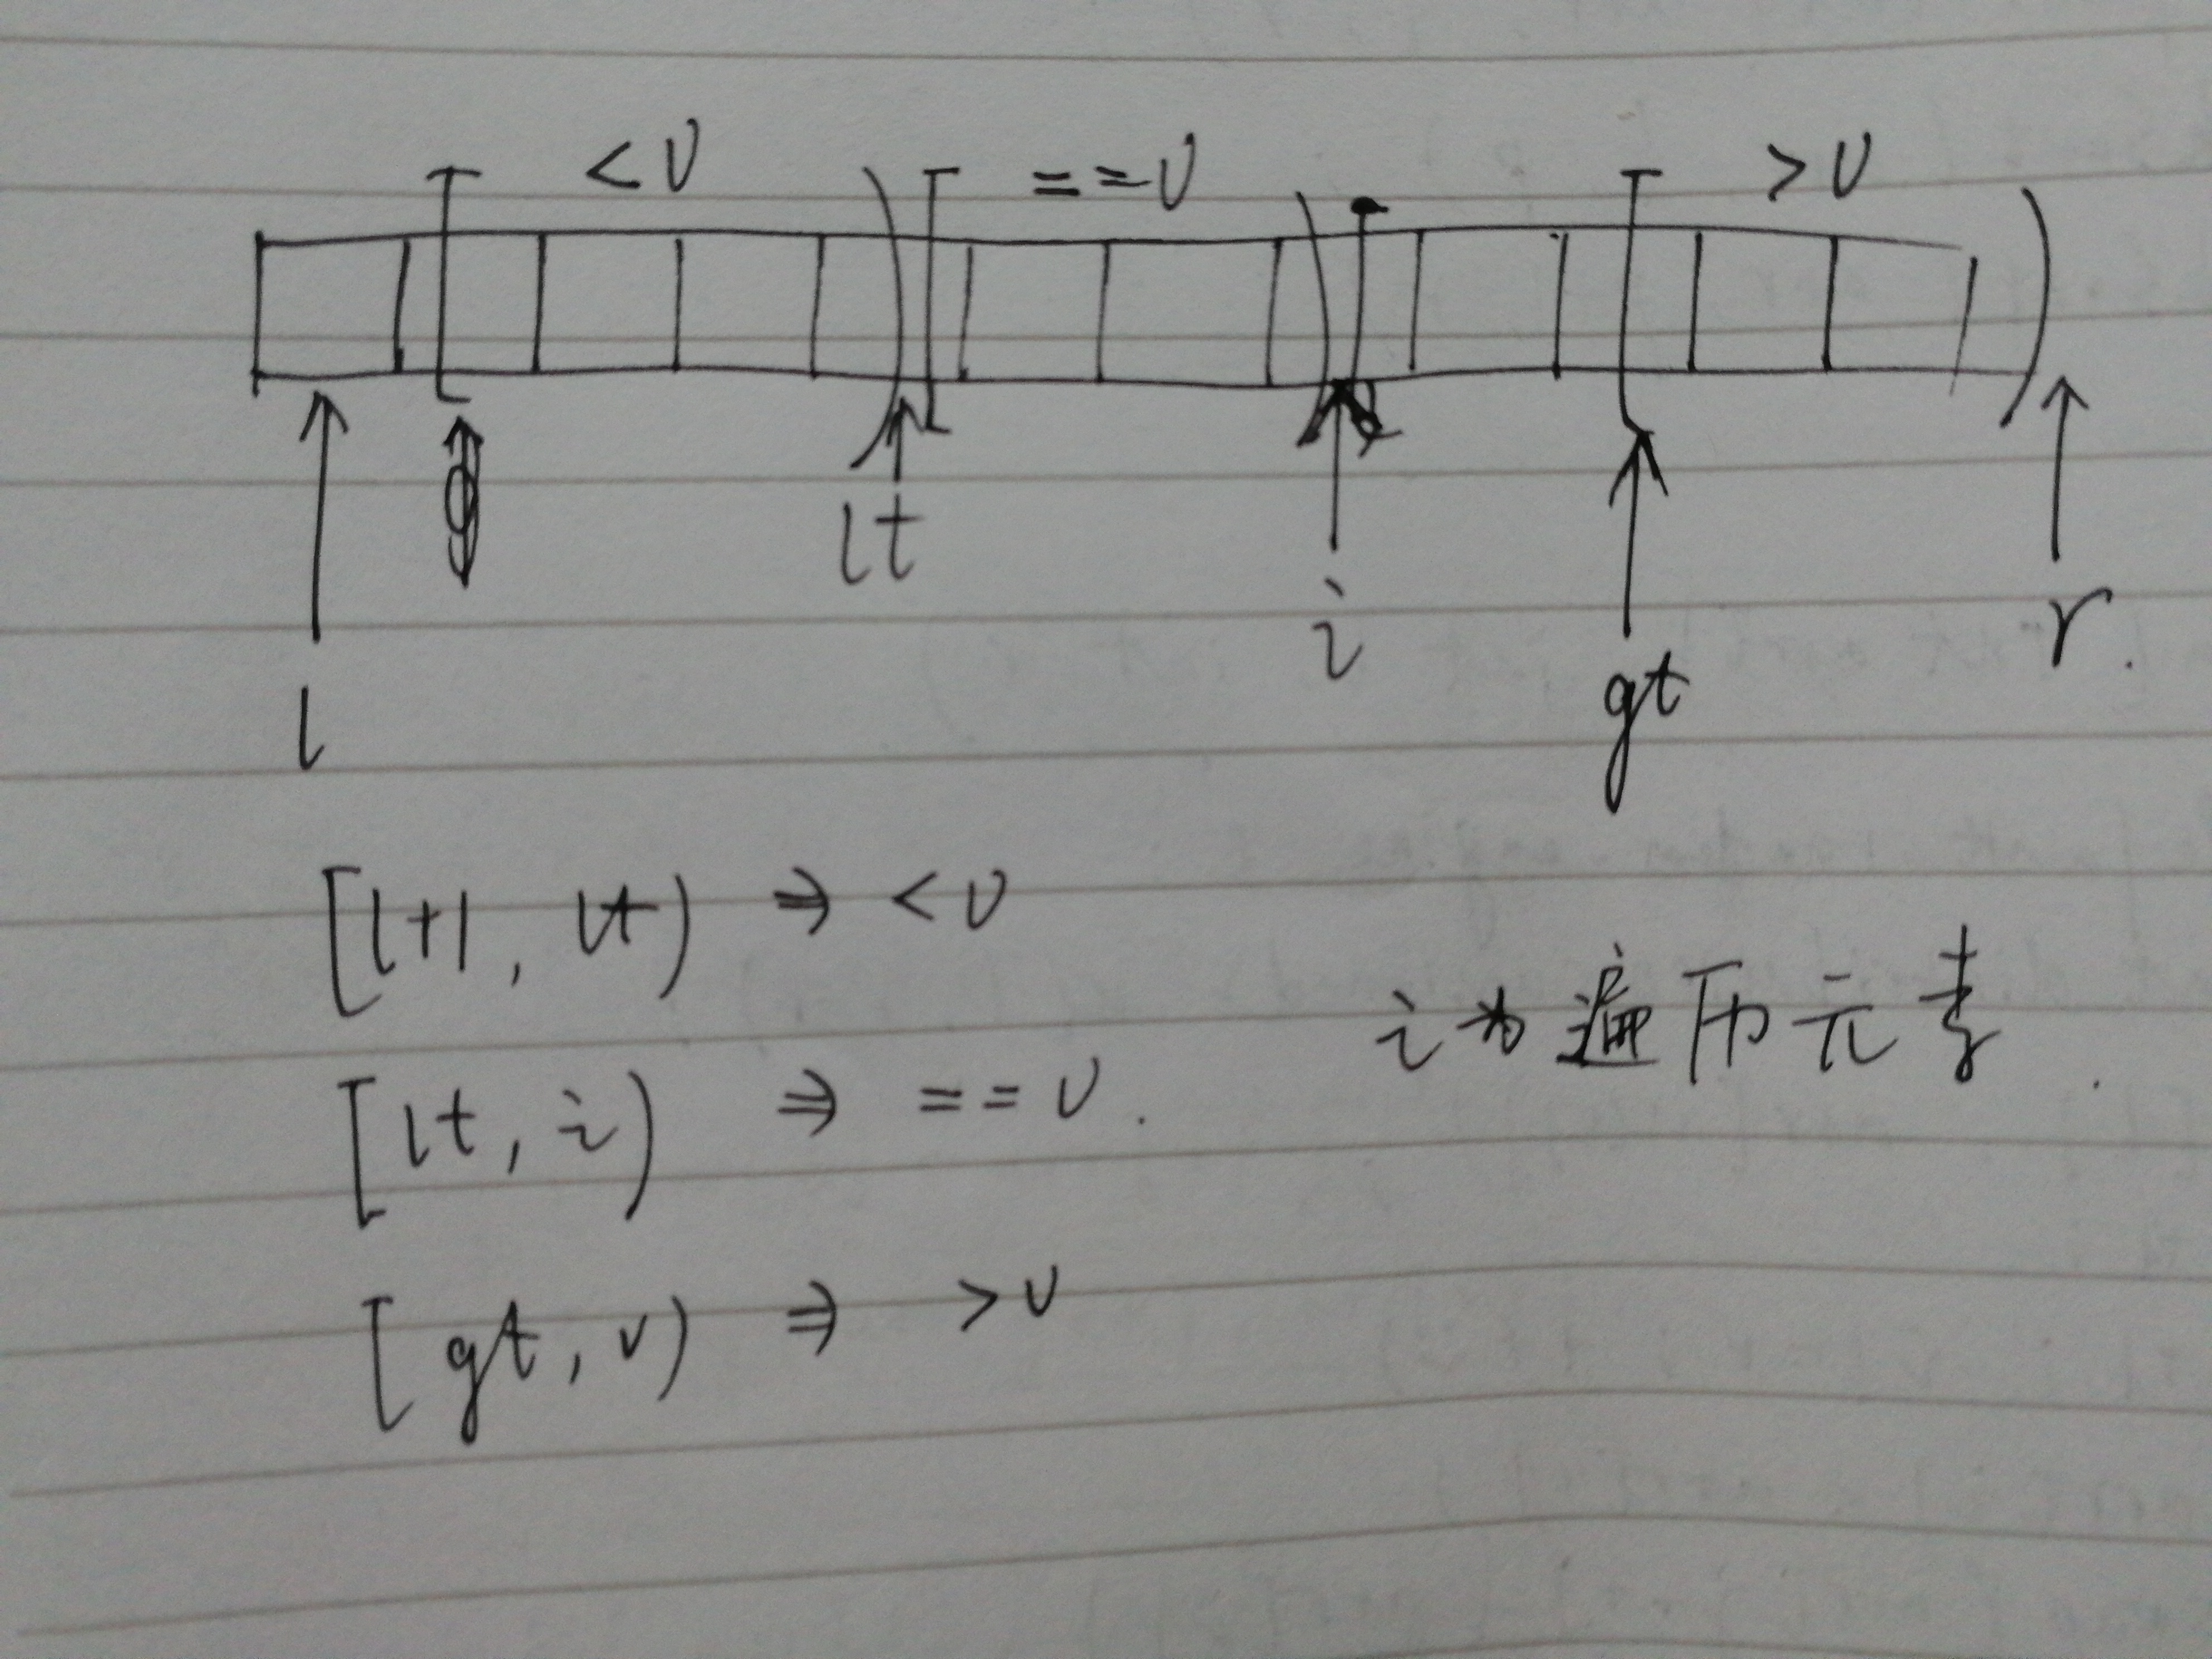 <v ==v >v
lt
i
gt r.
l
[l+1, lt) ⇒ <v
i为遍历元素.
[lt, i) ⇒ ==v.
[gt, v) ⇒ >v